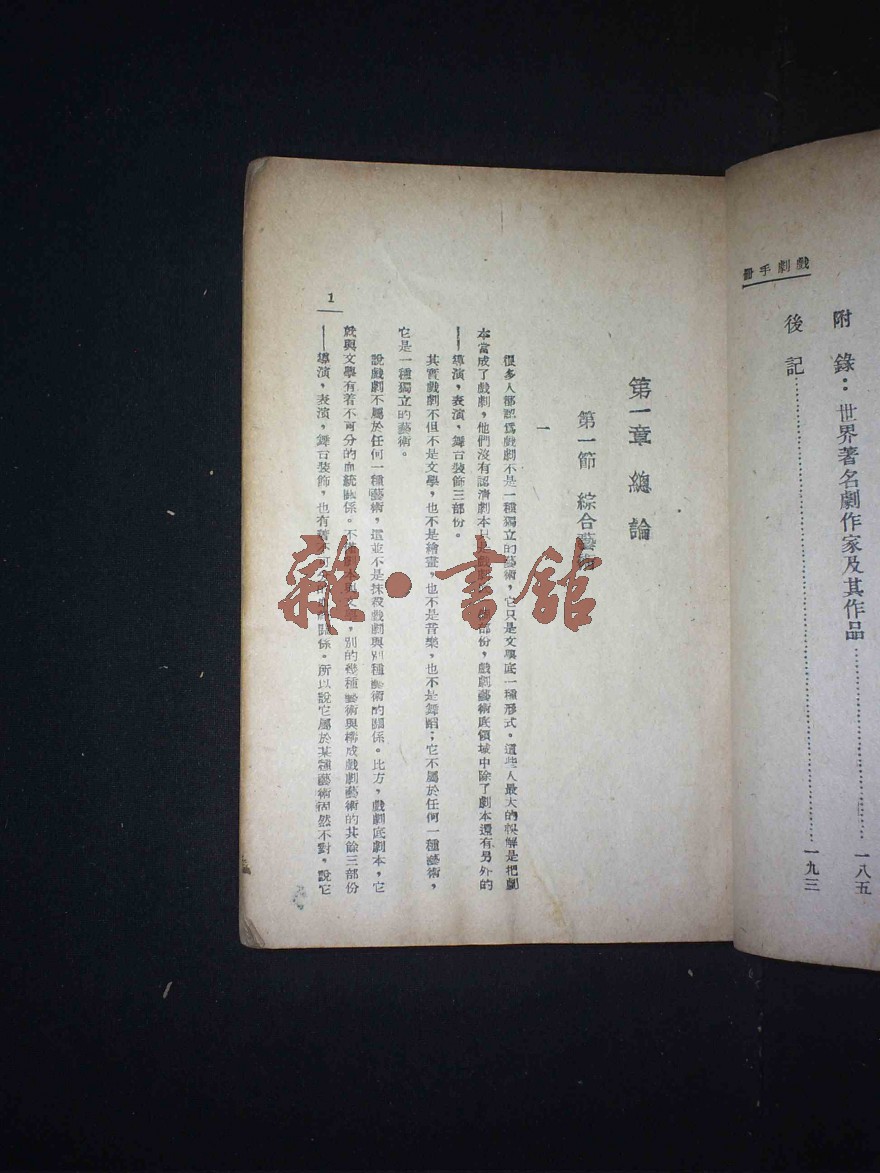 戲劇手冊
附 錄：世界著名劇作家及其作品………………一八五
後 記………………………………一九三
第一章 總 論
第一節 綜合藝術
一
很多人都認爲戲劇不是一種獨立的藝術，它只是文學底一種形式。這些人最大的誤解是把劇
本當成了戲劇，他們沒有認清劇本只是戲劇底一部份，戲劇藝術底領域中除了劇本還有另外的
——導演，表演，舞台裝飾三部份。
其實戲劇不但不是文學，也不是繪畫，也不是音樂，也不是舞蹈；它不屬於任何一種藝術，
它是一種獨立的藝術。
說戲劇不屬於任何一種藝術，這並不是抹殺戲劇與別種藝術的關係。比方，戲劇底劇本，它
就與文學有着不可分的血統關係。不僅劇本與文學，別的幾種藝術與構成戲劇藝術的其餘三部份
——導演，表演，舞台裝飾，也有着不可分的血統關係。所以說它屬於某種藝術固然不對，說它
1
雜·書館